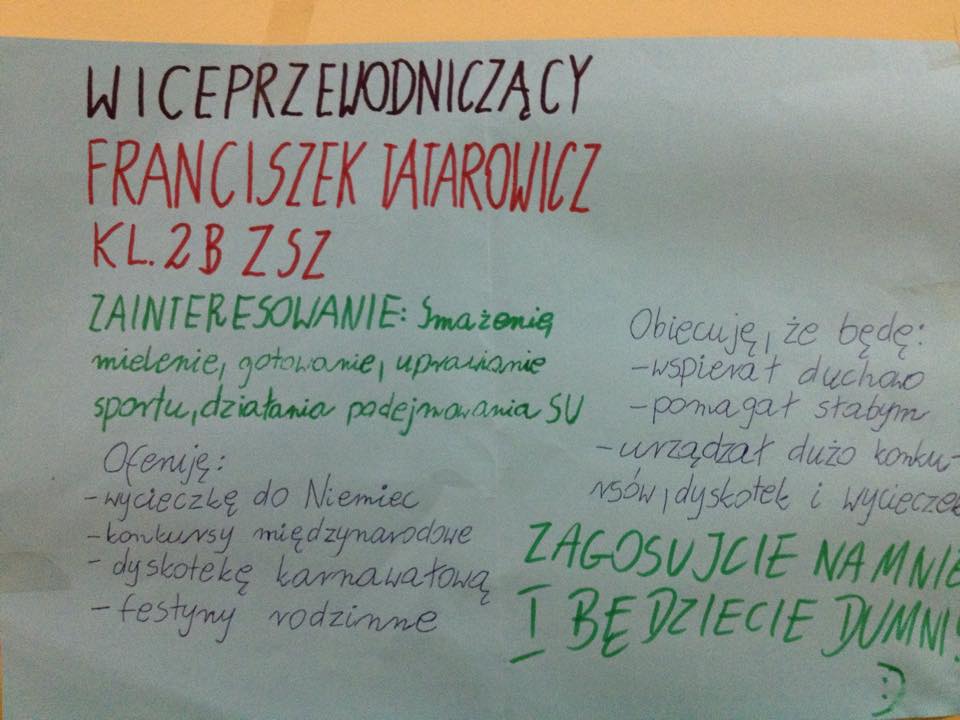 WICEPRZEWODNICZĄCY
FRANCISZEK TATAROWICZ
KL. 2B ZSZ
ZAINTERESOWANIE: Smażenię
mielenie, gotowanie, uprawianie
sportu, działania podejmowania SU
Oferiję:
- wycieczkę do Niemiec
- konkursy międzynarodowe
- dyskotekę karnawałową
- festyny rodzinne
Obiecuję, że będę:
- wspierał duchowo
- pomagał słabym
- urządzał dużo konku-
rsów, dyskotek i wycieczek
ZAGOSUJCIE NA MNIE
I BĘDZIECIE DUMNI!
:)